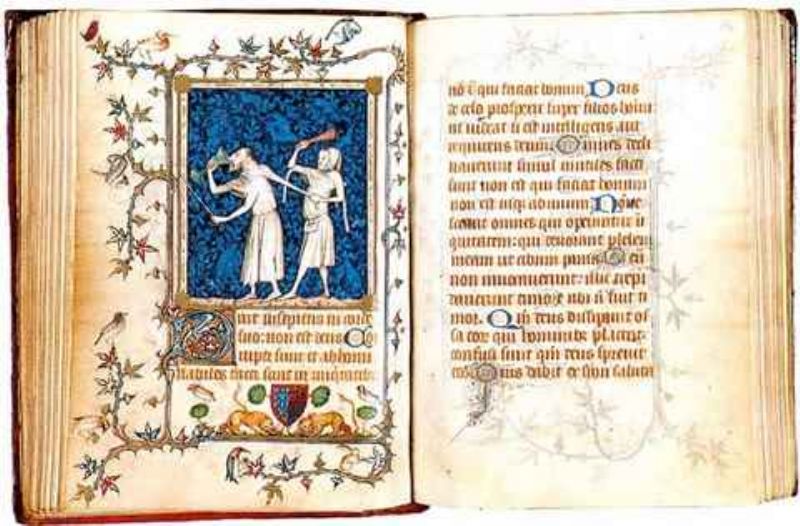 Dixit insipiens in corde
suo: non est deus Co
rrupti sunt et abhomi
nabiles facti sunt in iniquitatib;
nō ē qui faciat bonum. Deus
de celo prospexit super filios homi
nū ut videat si est intelligens aut
requirens deum. Omnes decli
naverunt simul inutiles facti
sunt non est qui faciat bonum
non est usq; ad unum. Nōne
scient omnes qui operantur i
quitatem: qui devorant plebem
meam ut cibum panis Deū
non invocaverunt: illic trepi
daverunt timore ubi nō fuit ti
mor. Qm̄ deus dissipavit os
sa eor qui hominibz placent:
confusi sunt qm̄ deus sprevit
eos Quis dabit ex syon salutare